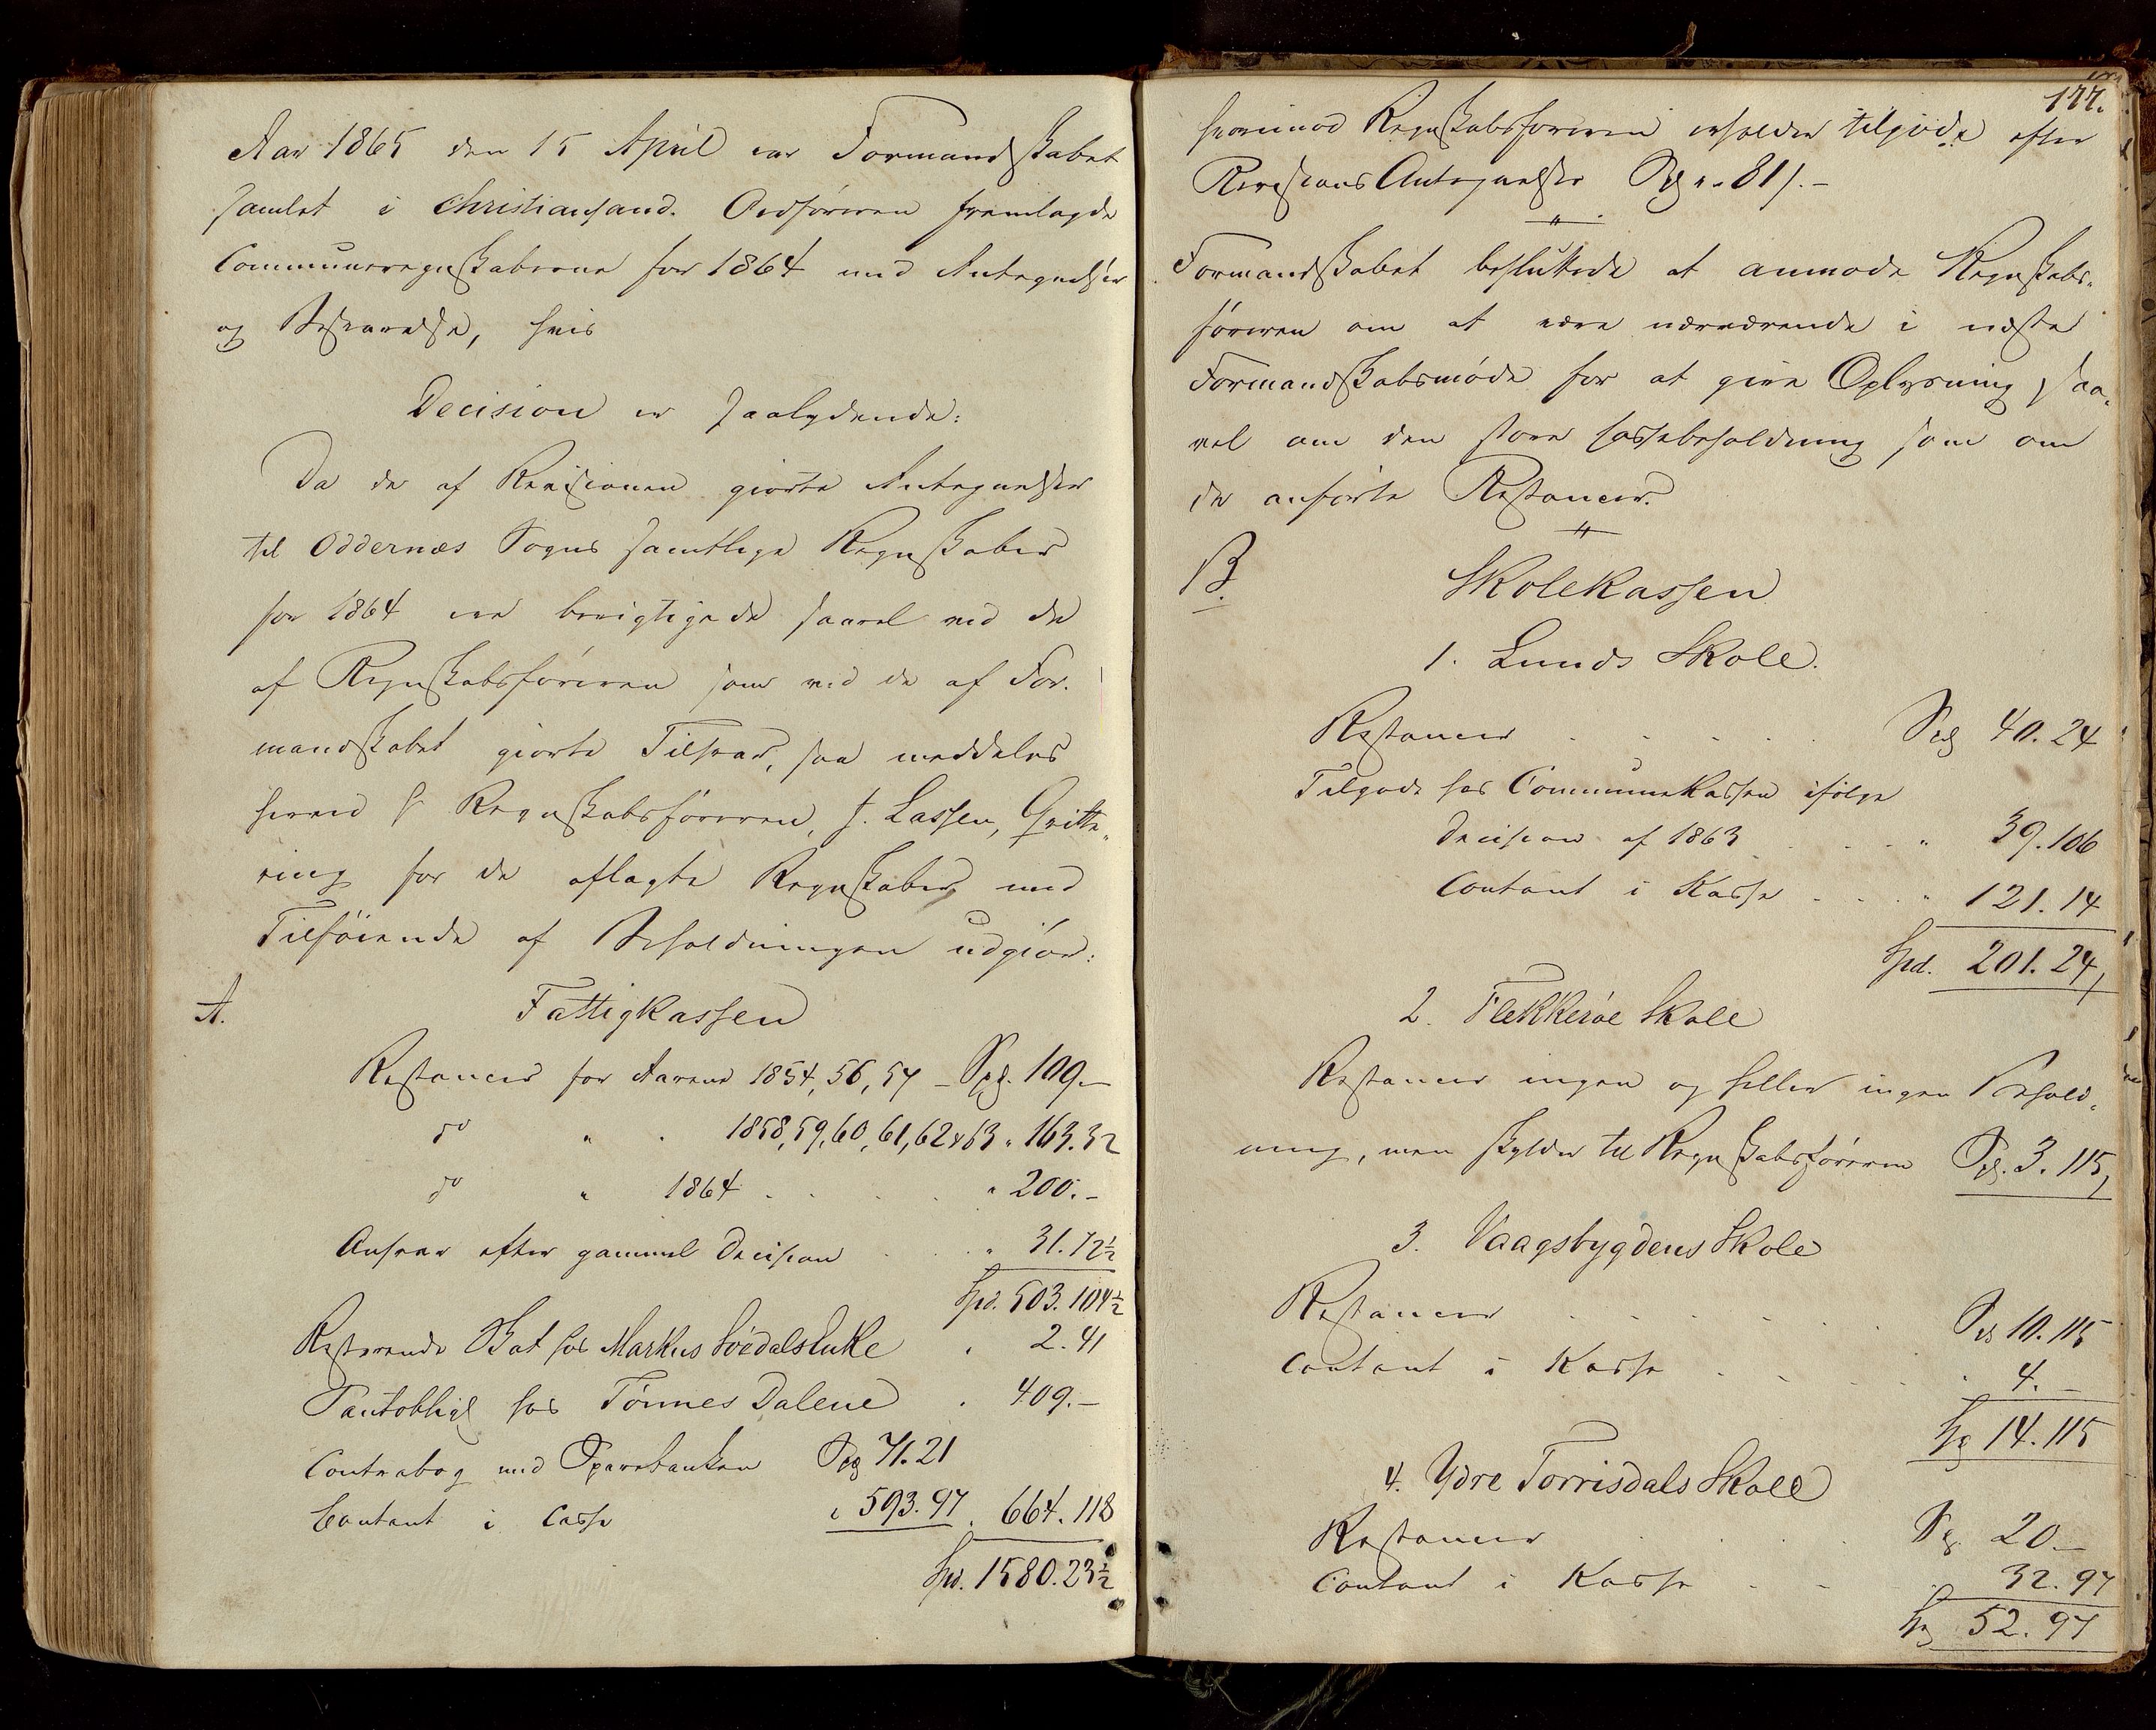 Aar 1865 den 15 April var Formandskabet
samlet i Christiansand. Ordføreren fremlagde
Communeregnskaberne for 1864 med Antegnelser
og Besvarelse, hvis
Decision er saalydende:
Da de af Revisionen giorte Antegnelser
til Oddernæs Sogns samtlige Regnskaber
for 1864 ere berigtigede saavel ved de
af Regnskabsføreren som ved de af For-
mandskabet giorte Tilsvar, saa meddeles
herved Hr Regnskabsføreren, J. Lassen, Qvitte-
ring for de aflagte Regnskaber med
Tilføiende af Beholdningen udgiør:
A. Fattigkassen
Restancer for Aarene 1854, 56, 57 - Spd. 109.-
do " . 1858, 59, 60, 61, 62 & 63 " 163.32
do " 1864 . . . . " 200.-
Ansvar efter gammel Decision . . " 31.72½
Spd. 503.104½
Resterende Skat hos Markus Søedalsluke " 2.41
Pantobligl hos Tønnes Dalene . 409.-
Contrabog med Sparebanken Spd 71.21
Contant i Casse " 593.97 . 664.118
Spd. 1580.23½
177.
hvorimod Regnskabsføreren erholder tilgode efter
Revisions Antegnelser Spd ". 81 s.-
"
Formandskabet besluttede at anmode Regnskabs-
føreren om at være nærværende i næste
Formandskabsmøde for at give Oplysning saa-
vel om den store Cassebeholdning som om
de anførte Restancer.
"
B. Skolekassen
1. Lunds Skole.
Restancer . . . . . Spd 40.24
Tilgode hos Communekassen ifølge
Decision af 1863 . . . . " 39.106
Contant i Kasse . . . " 121.14
Spd. 201.24
2. Flekkerøe Skole
Restancer ingen og heller ingen Behold-
ning, men skylder til Regnskabsføreren Spd. 3.115
3. Vaagsbygdens Skole
Restancer . . . . . . Spd 10.115
Contant i Kasse . . . . . 4.-
Spd 14.115
4. Ydre Torrisdals Skole
Restancer . . . Spd. 20.-
Contant i Kasse . - . 32.97
Spd 52.97